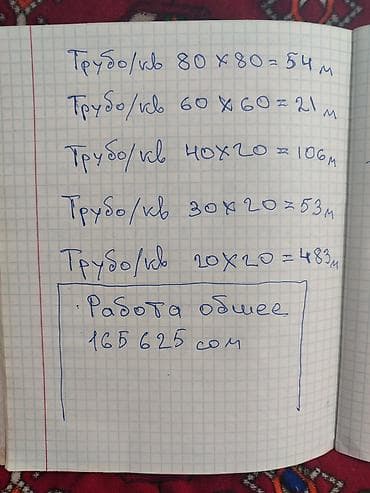 Трубо/кв 80 x 80 = 54 м
Трубо/кв 60 x 60 = 21 м
Трубо/кв 40 x 20 = 106 м
Трубо/кв 30 x 20 = 53 м
Трубо/кв 20 x 20 = 483 м
Работа обшее
165 625 сом